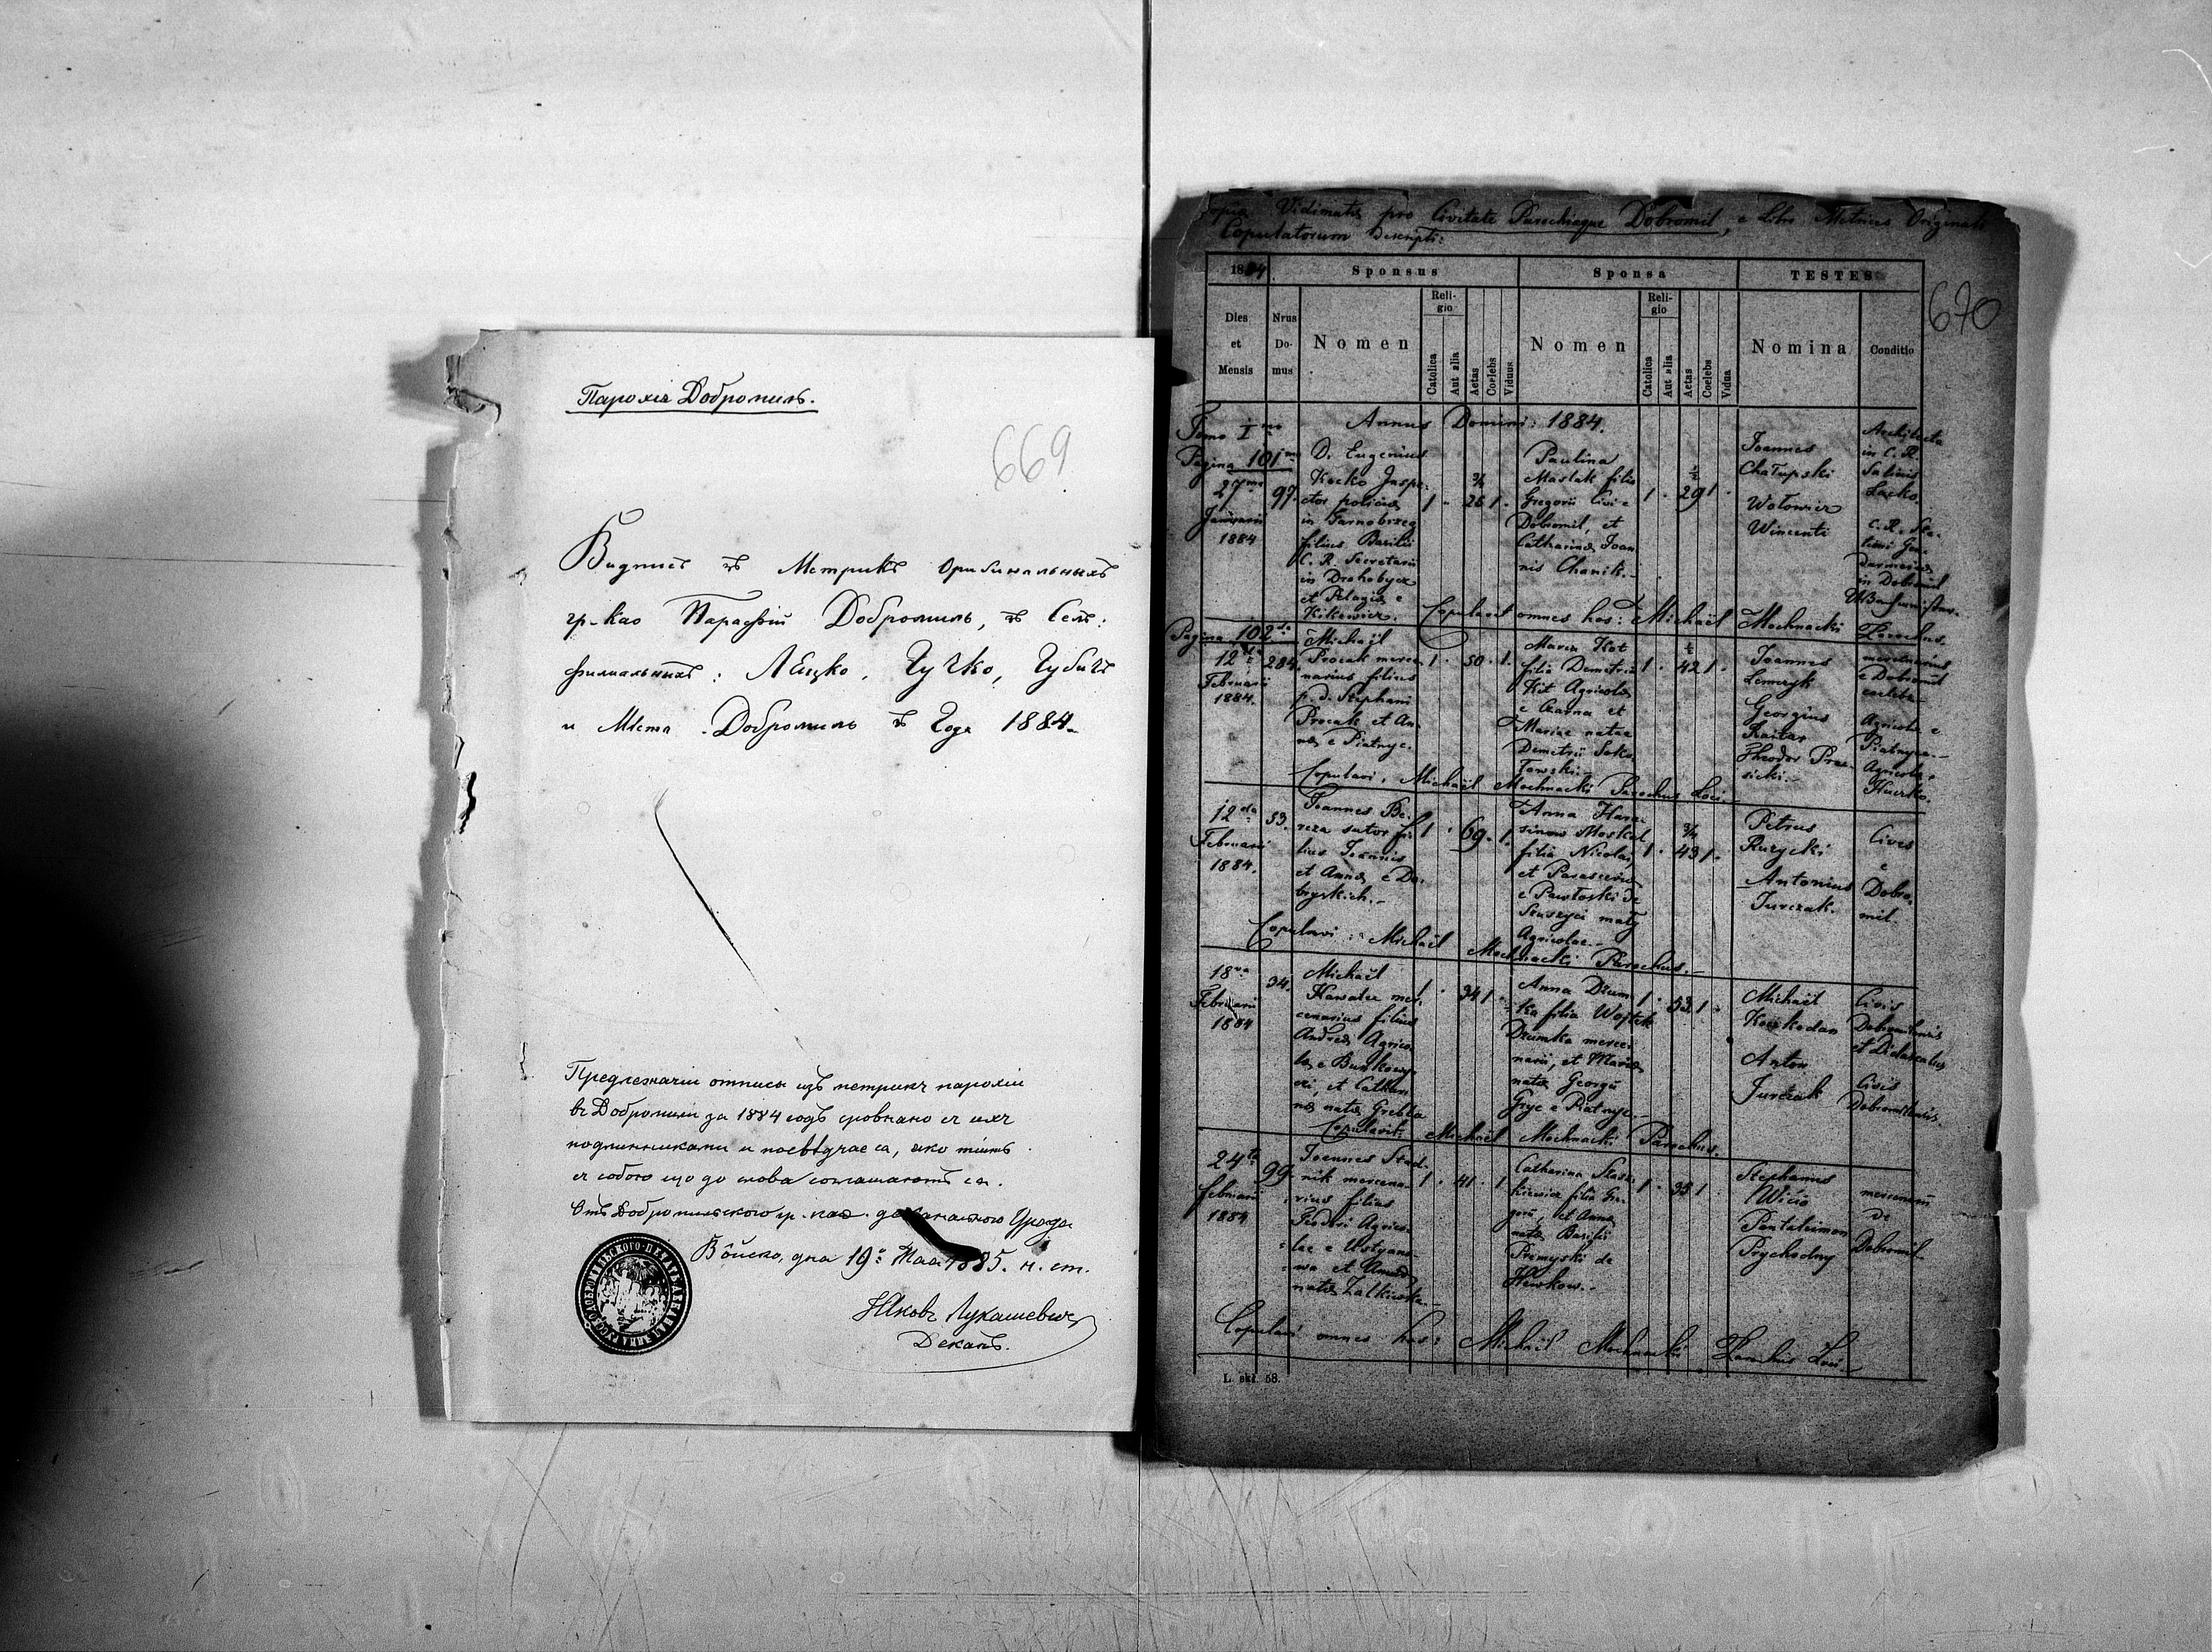 Парохіѧ Добромиль.
669
Видписъ зъ Метрикъ Оригинальныхъ
гр-као Парафіи Добромиль, зъ Селъ:
филиальныхъ: Ляцко, Гучко, Губичъ
и Мѣста Добромиль зъ Года 1884.
Предлежачіи отписы изъ метрикъ парохіи
въ Добромили за 1884 годъ зровнано съ ихъ
подлинниками и посвѣдчае ся, яко тіижъ
съ собою що до слова соглашаютъ ся.
Отъ Добромильского гр. као. деканального Уряда
Вôйско, дна 19º Мая 1885. н. ст.
Яковъ Лукашевичъ
Деканъ.
Copia Vidimata pro Civitate Parochiaque Dobromil, e Libro Metrices Originali
Copulatorum descripti:
670
1884 Sponsus Sponsa TESTES
Dies et Mensis Nrus Domus Nomen Religio Catholica Aut alia Aetas Coelebs Viduus Nomen Religio Catholica Aut alia Aetas Coelebs Vidua Nomina Conditio
Tomo I mo Annus Domini: 1884.
Pagina 101 ma
27 ma
Januarii
1884
97.
D. Eugenius
Kocko Inspe-
ctor policiae
in Tarnobrzeg
filius Basilii
C. R. Secretarii
in Drohobycz
et Pelagia e
Kikewicz.
1 26 1
Paulina
Maslak filia
Gregorii Civi e
Dobromil, et
Catharina Joan
nis Chanik.-
1 29 1
Joannes
Chałupski
Wołowicz
Wincenti
Architecta
in C. R.
Salinis
Lacko.
in Dobromil
Copulavit omnes hos: Michaël Mochnacki Parochus.
Pagina 102 da
12
Februarii
1884.
284.
Michaël
Procak merce
narius filius
p. d. Stephani
Procak et An-
na e Piatnyc.
1 50 1
Maria Kot
filia Demetrii
Kit Agricola
e Czarna et
Mariae natae
Demetrii Soko
łowski.-
1 42 1
Joannes
Lemczyk
Georgius
Raitar
Theodor Prze-
sicki.-
mercenarius
e Dobromil
Agricola e
Piatnyca.-
Agricola e
Huczko.
Copulavi: Michaël Mochnacki Parochus Loci.
12 da
Februarii
1884.
53.
Joannes Be-
reza sutor fi-
lius Joannis
et Anna e Do-
bryskich.-
1 69 1
Anna Hara-
simow Moskal
filia Nicolai
et Parascevia
e Pawłoski de
Starzyci mały
Agricolae.-
1 43 1
Petrus
Ruzycki
Antonius
Jurczak.
Cives
e
Dobro-
mil.
Copulavi: Michaël Mochnacki Parochus.-
18 va
Februarii
1884
34.
Michaël
Kawalec mer-
cenarius filius
Andrea Agrico
la e Buńkow
et Cathari
na nata Grebla
1 34 1
Anna Dżum-
ka filia Wojtek
Dżumka merce-
narii, et Maria
nata Georgii
Gryc e Piatnyc.-
1 53 1
Michaël
Koczkodan
Anton
Jurczak
Civis
Dobromilensis
Civis
Dobromilensis.
Copulavit Michaël Mochnacki Parochus.
24 ta
Februarii
1884
99.
Joannes Stad-
nik mercena-
rius filius
Teodori Agrico-
lae e Ustyano-
wa et Anna
nata Zalkiwska
1 41 1
Catharina
filia Gre-
gorii, et Anna
nata Basilii
Premyski de
1 35 1
Stephanus
Wićio
Pantaleimon
Prychodny
mercenarii
de
Dobromil.
Copulavi omnes hos: Michaël Mochnacki Parochus Loci.-
L. skł. 58.